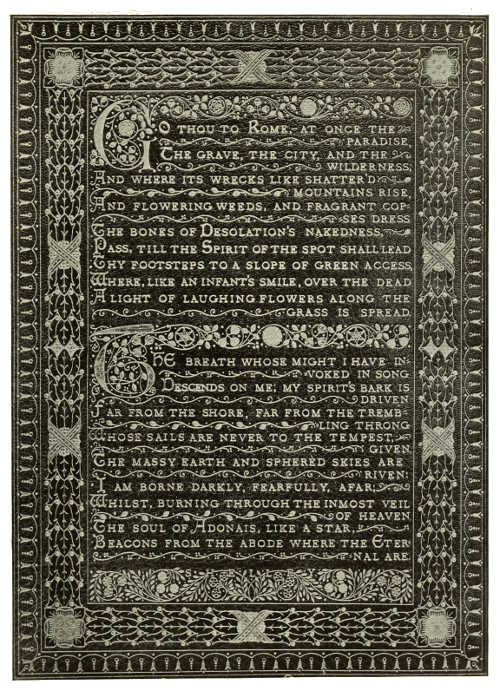 GO THOU TO ROME, AT ONCE THE
PARADISE,
THE GRAVE, THE CITY, AND THE
WILDERNESS;
AND WHERE ITS WRECKS LIKE SHATTER'D
MOUNTAINS RISE,
AND FLOWERING WEEDS, AND FRAGRANT COP-
SES DRESS
THE BONES OF DESOLATION'S NAKEDNESS,
PASS, TILL THE SPIRIT OF THE SPOT SHALL LEAD
THY FOOTSTEPS TO A SLOPE OF GREEN ACCESS,
WHERE, LIKE AN INFANT'S SMILE, OVER THE DEAD
A LIGHT OF LAUGHING FLOWERS ALONG THE
GRASS IS SPREAD.
THE BREATH WHOSE MIGHT I HAVE IN-
VOKED IN SONG
DESCENDS ON ME; MY SPIRIT'S BARK IS
DRIVEN
FAR FROM THE SHORE, FAR FROM THE TREMB-
LING THRONG
WHOSE SAILS ARE NEVER TO THE TEMPEST
GIVEN
THE MASSY EARTH AND SPHERED SKIES ARE
RIVEN!
I AM BORNE DARKLY, FEARFULLY, AFAR;
WHILST, BURNING THROUGH THE INMOST VEIL
OF HEAVEN
THE SOUL OF ADONAIS, LIKE A STAR,
BEACONS FROM THE ABODE WHERE THE ETER-
NAL ARE.